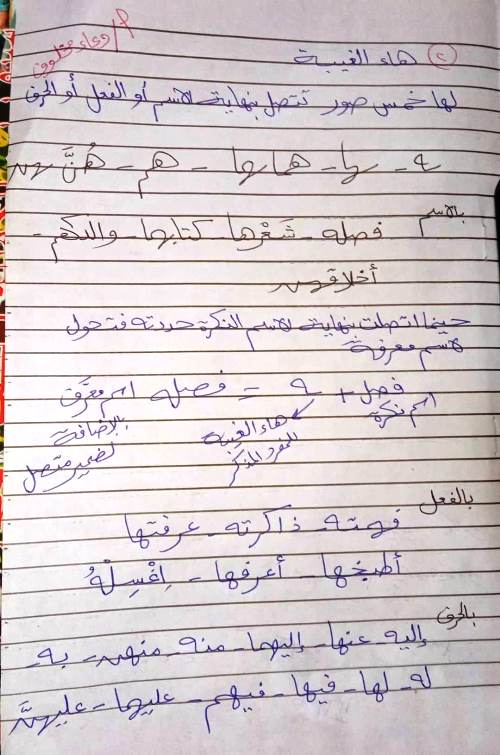 أ/ دعاء مخلوف
② هاء الغيبة
لها خمس صور تتصل بنهاية الاسم أو الفعل أو الحرف
ـه - ـها - هما ـهما - هم - هُنَّ ـهن
بالاسم
فصله - شَعْرها - كتابها - والدهم -
أخلاقهن
حينما اتصلت بنهاية الاسم النكرة حددته فتحول
لاسم معرفة
فصل + ـه = فصله اسم معرَّف
اسم نكرة هاء الغيبة بالإضافة
للمفرد المذكر لضمير متصل
بالفعل
فهمته - ذاكرته - عرفتها
أطبخها - أعرفها - اِغْسِلْهُ
بالحرف
إليه - عنها - إليهما - منه - منهن - به -
له - لها - فيها - فيهم - عليها - عليهنَّ